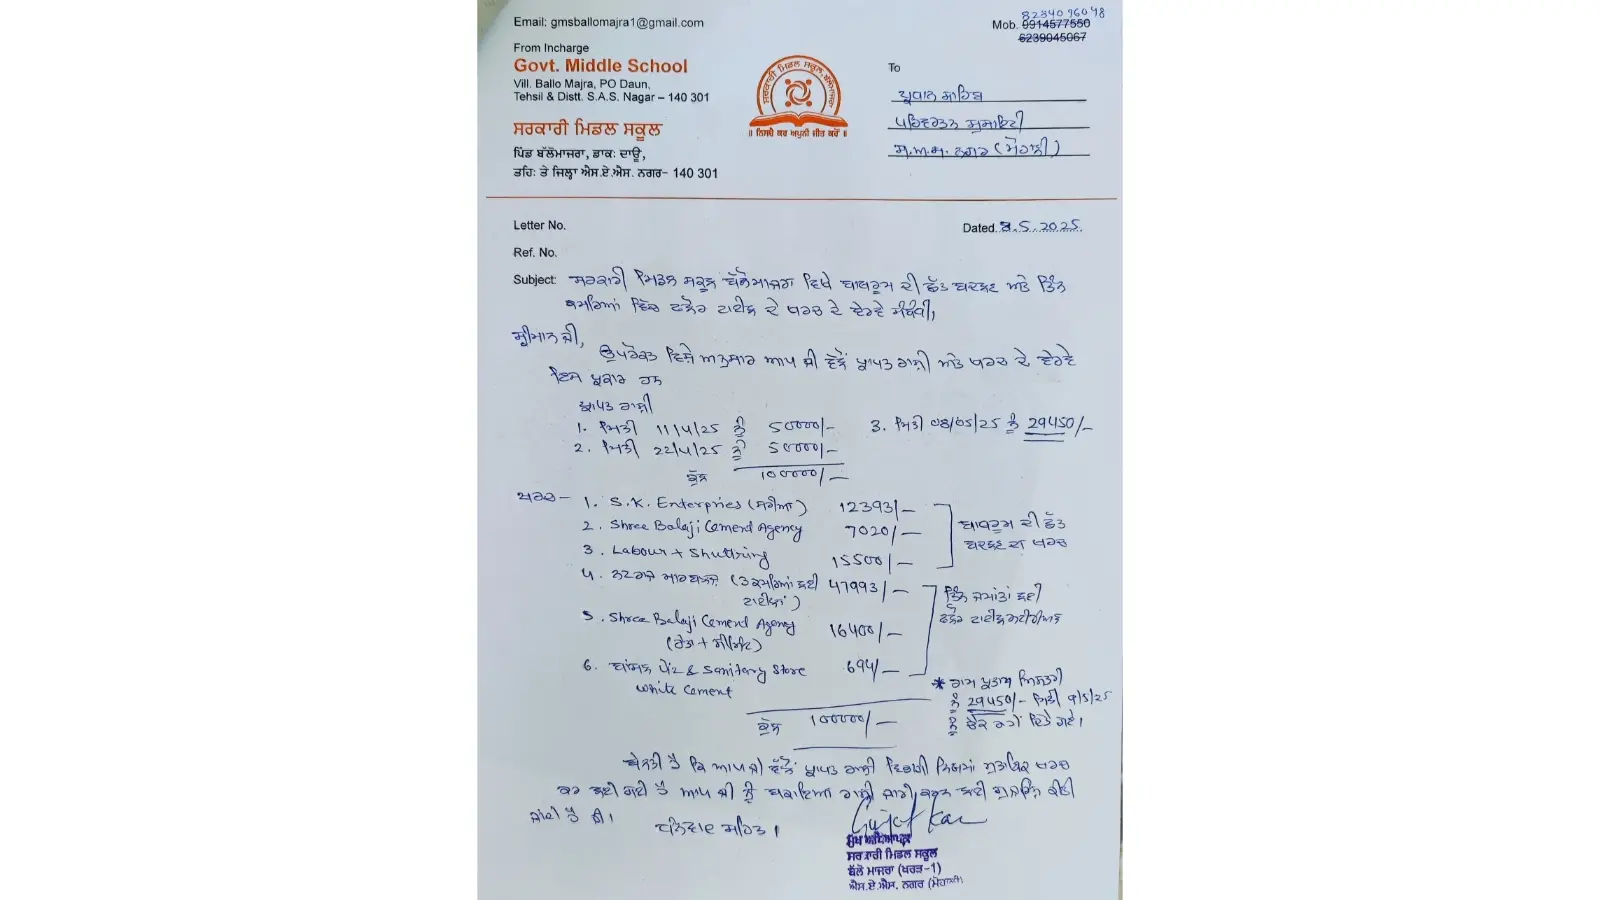 Email: gmsballomajra1@gmail.com
8284096048
Mob. 9914577550
6239045067
From Incharge
Govt. Middle School
Vill. Ballo Majra, PO Daun,
Tehsil & Distt. S.A.S. Nagar – 140 301
ਸਰਕਾਰੀ ਮਿਡਲ ਸਕੂਲ
ਪਿੰਡ ਬੱਲੋਮਾਜਰਾ, ਡਾਕ: ਦਾਊ,
ਤਹਿ: ਤੇ ਜ਼ਿਲ੍ਹਾ ਐਸ.ਏ.ਐਸ. ਨਗਰ- 140 301
ਸਰਕਾਰੀ ਮਿਡਲ ਸਕੂਲ, ਬੱਲੋਮਾਜਰਾ
॥ ਨਿਸਚੈ ਕਰ ਅਪੁਨੀ ਜੀਤ ਕਰੋਂ ॥
To
ਪ੍ਰਧਾਨ ਸਾਹਿਬ
ਪਰਿਵਰਤਨ ਸੁਸਾਇਟੀ
ਸ.ਅ.ਸ. ਨਗਰ (ਮੋਹਾਲੀ)
Letter No.
Dated 8.5.2025.
Ref. No.
Subject: ਸਰਕਾਰੀ ਮਿਡਲ ਸਕੂਲ ਬੱਲੋਮਾਜਰਾ ਵਿਖੇ ਬਾਥਰੂਮ ਦੀ ਛੱਤ ਬਦਲਣ ਅਤੇ ਤਿੰਨ
ਕਮਰਿਆਂ ਵਿੱਚ ਫਲੋਰ ਟਾਈਲ ਦੇ ਖਰਚ ਦੇ ਵੇਰਵੇ ਸੰਬੰਧੀ,
ਸ਼੍ਰੀਮਾਨ ਜੀ,
ਉਪਰੋਕਤ ਵਿਸ਼ੇ ਅਨੁਸਾਰ ਆਪ ਜੀ ਵੱਲੋਂ ਪ੍ਰਾਪਤ ਰਾਸ਼ੀ ਅਤੇ ਖਰਚ ਦੇ ਵੇਰਵੇ
ਇਸ ਪ੍ਰਕਾਰ ਹਨ
ਪ੍ਰਾਪਤ ਰਾਸ਼ੀ
1. ਮਿਤੀ 11/4/25 ਨੂੰ 50000/- 3. ਮਿਤੀ 08/05/25 ਨੂੰ 29450/-
2. ਮਿਤੀ 22/4/25 ਨੂੰ 50000/-
ਕੁੱਲ 100000/-
ਖਰਚ - 1. S.K. Enterpries (ਸਰੀਆ) 12393/-
2. Shree Balaji Cement Agency 7020/-
3. Labour + Shuttring 15500/-
ਬਾਥਰੂਮ ਦੀ ਛੱਤ
ਬਦਲਣ ਦਾ ਖਰਚ
4. ਨਟਰਾਜ ਮਾਰਬਲਜ (3 ਕਮਰਿਆਂ ਲਈ 47993/-
ਟਾਈਲਾਂ)
5. Shree Balaji Cement Agency 16400/-
(ਰੇਤਾ + ਸੀਮਿੰਟ)
6. ਬਾਂਸਲ ਪੇਂਟ & Sanitary Store 694/-
White Cement
ਤਿੰਨ ਜਮਾਤਾਂ ਲਈ
ਫਲੋਰ ਟਾਈਲ ਮਟੀਰੀਅਲ
ਕੁੱਲ 100000/-
* ਰਾਮ ਪ੍ਰਤਾਪ ਮਿਸਤਰੀ
ਨੂੰ 29450/- ਮਿਤੀ 9/5/25
ਨੂੰ ਚੈੱਕ ਰਾਹੀਂ ਦਿੱਤੇ ਗਏ।
ਬੇਨਤੀ ਹੈ ਕਿ ਆਪ ਜੀ ਵੱਲੋਂ ਪ੍ਰਾਪਤ ਰਾਸ਼ੀ ਵਿਭਾਗੀ ਨਿਯਮਾਂ ਮੁਤਾਬਿਕ ਖਰਚ
ਕਰ ਲਈ ਗਈ ਹੈ ਆਪ ਜੀ ਨੂੰ ਬਕਾਇਆ ਰਾਸ਼ੀ ਜਾਰੀ ਕਰਨ ਲਈ ਸੂਚਿਤ ਕੀਤੀ
ਜਾਂਦਾ ਹੈ ਜੀ।
ਧੰਨਵਾਦ ਸਹਿਤ।
ਮੁੱਖ ਅਧਿਆਪਕ
ਸਰਕਾਰੀ ਮਿਡਲ ਸਕੂਲ
ਬੱਲੋ ਮਾਜਰਾ (ਖਰੜ-1)
ਐਸ.ਏ.ਐਸ. ਨਗਰ (ਮੋਹਾਲੀ)